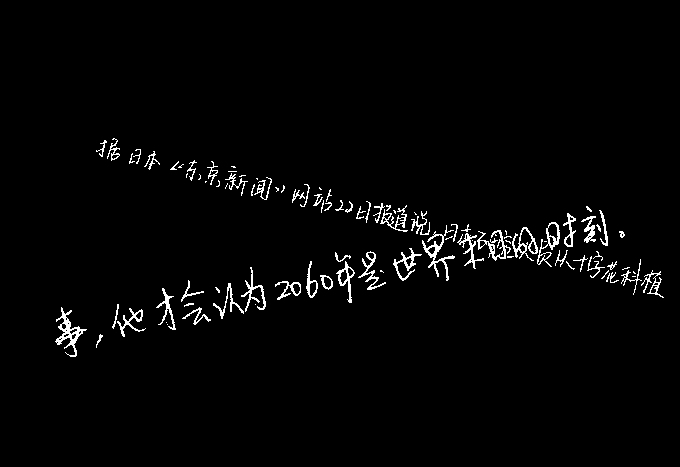 据日本《东京新闻》网站22日报道说,日本员从十字花科植
事,他才会认为2060年是世界的时刻。